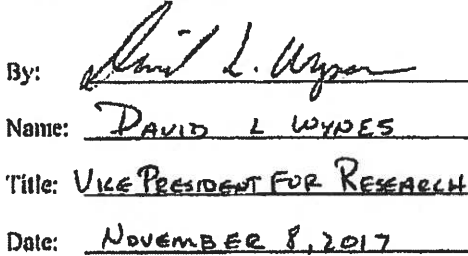 By: David L. Wynes
Name: DAVID L WYNES
Title: VICE PRESIDENT FOR RESEARCH
Date: NOVEMBER 8, 2017